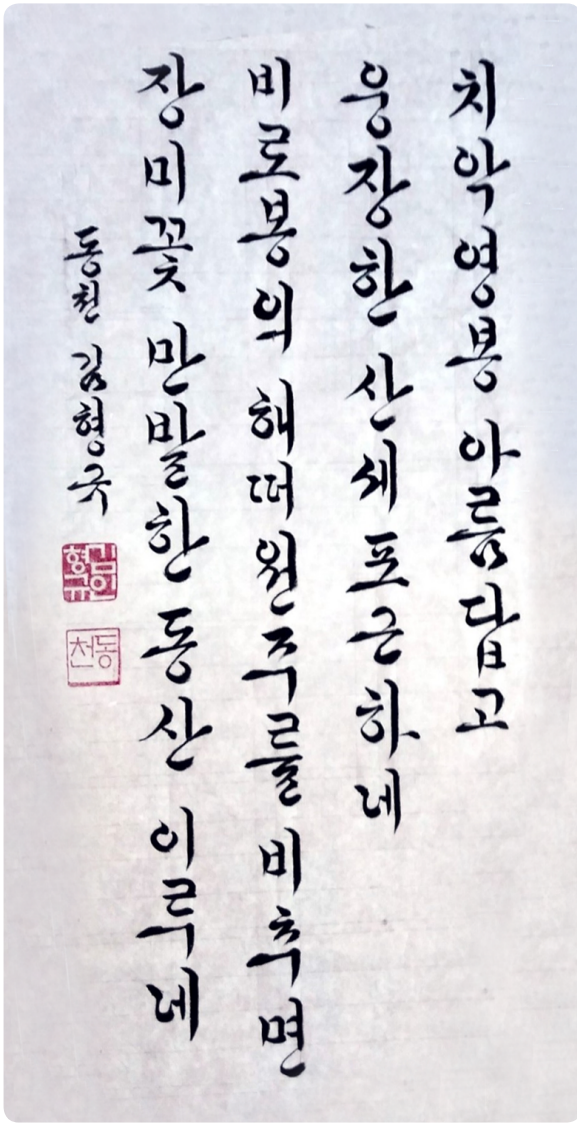 치악영봉 아름답고
웅장한 산세 포근하네
비로봉의 해떠 원주를 비추면
장미꽃 만발한 동산 이루네
동천 김형국
동천